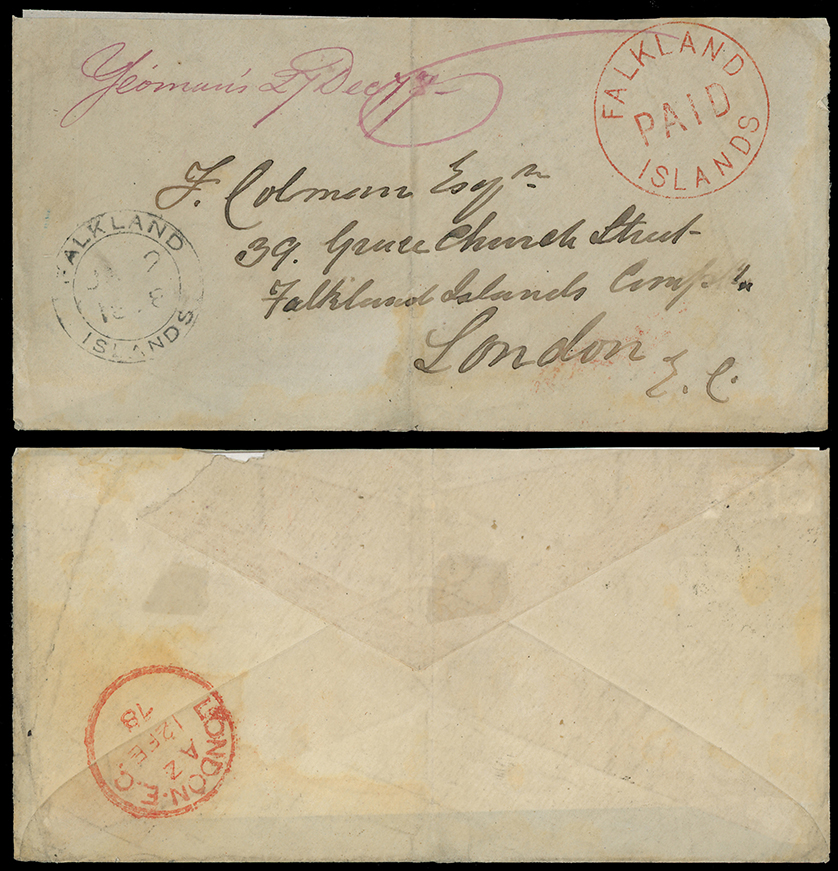 Yeoman's 27 Dec 77
FALKLAND
PAID
ISLANDS
F. Cobman Esqre
39. Grace Church Street
Falkland Islands Comp
London
E. C.
FALKLAND
ISLANDS
LONDON·E.C
A Z
12 FE
78